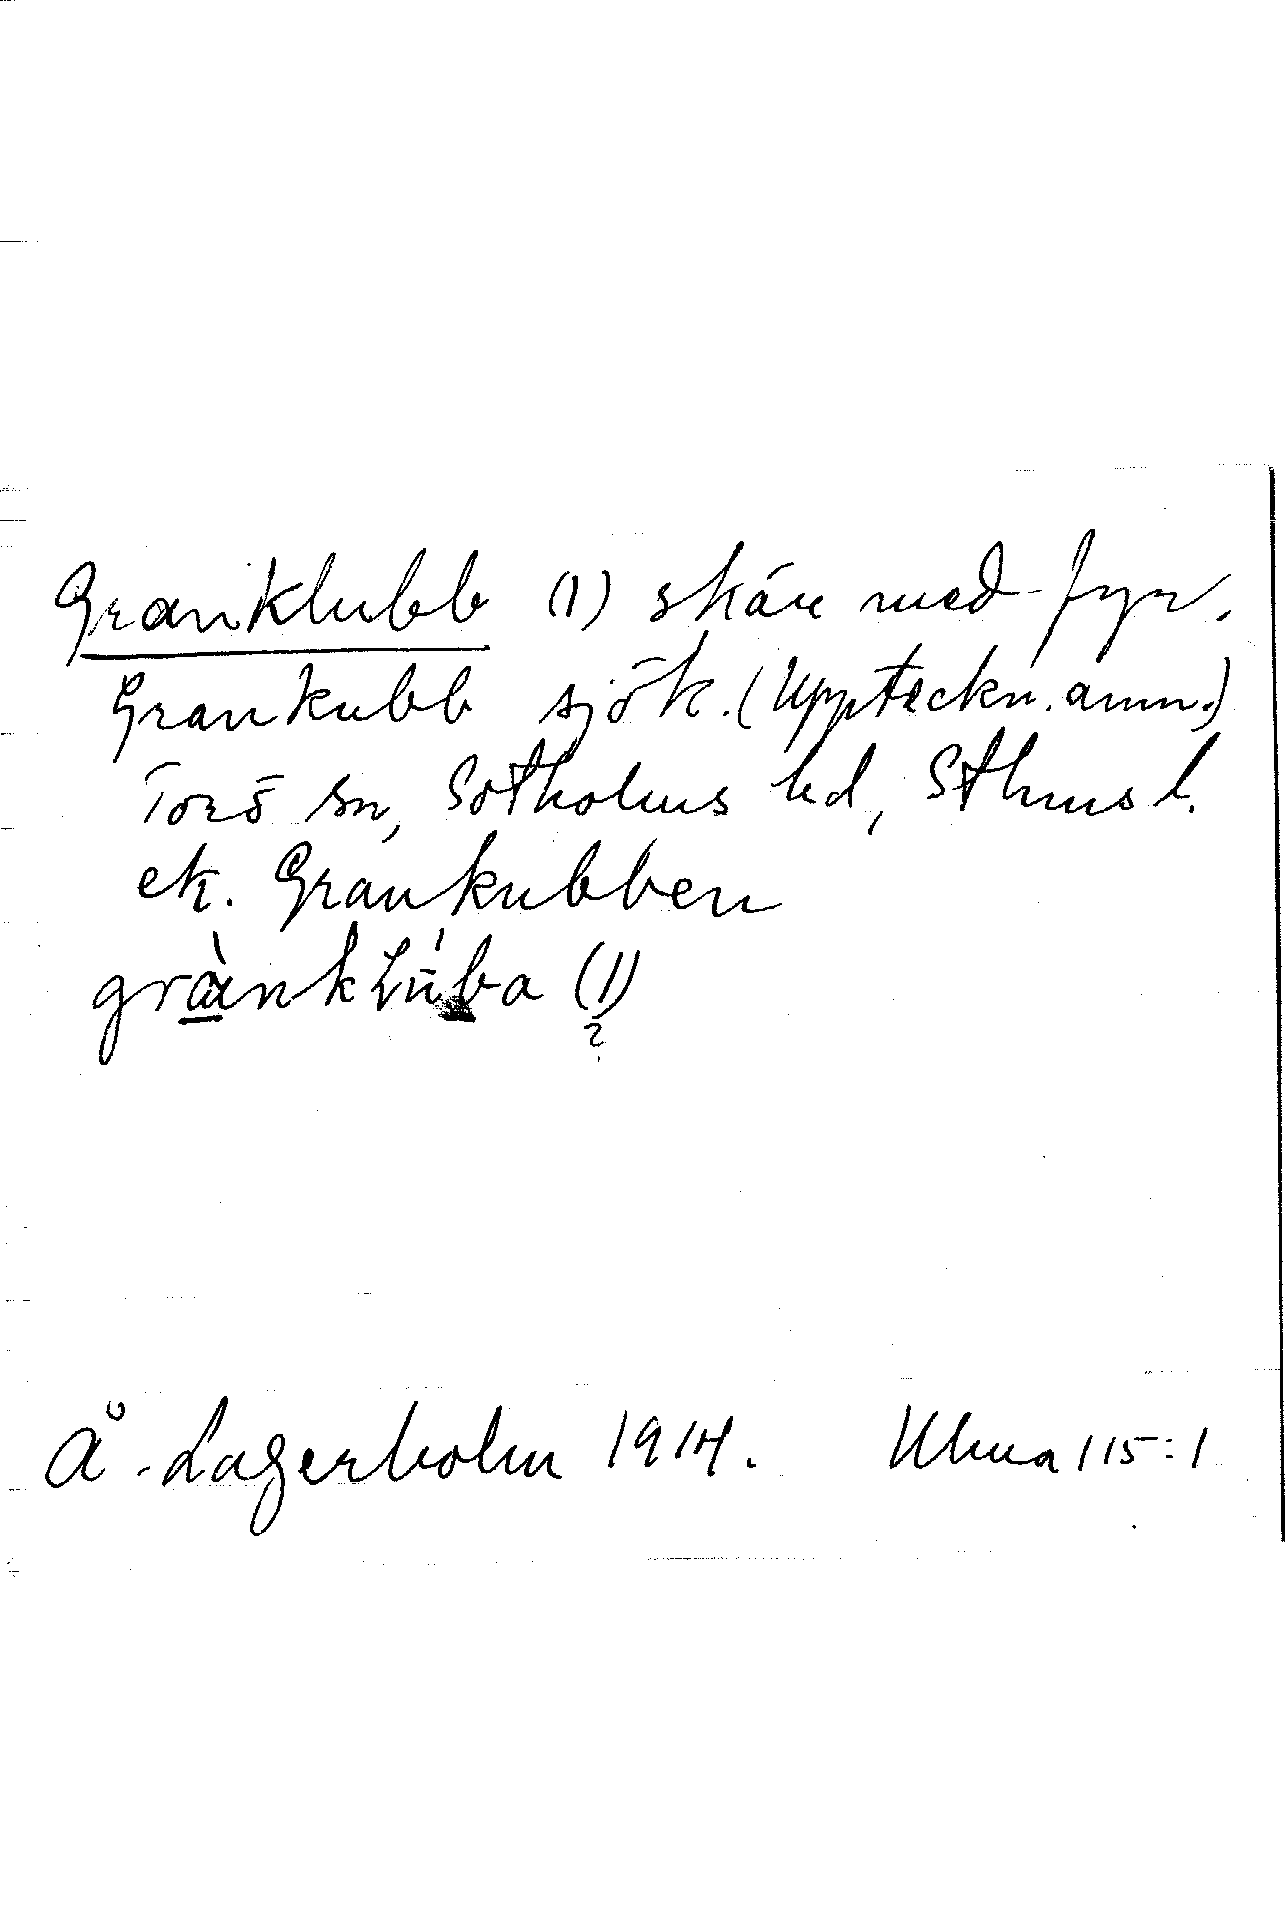 Granklubb (1) skär med fyr.
Grankubb sjök. (Uppteckn. anm.)
Torö sn, Sotholms hd, Sthms l.
ek. Grankubben
grànklúba (1)
?
Å. Lagerholm 1914. Ulma 115:1